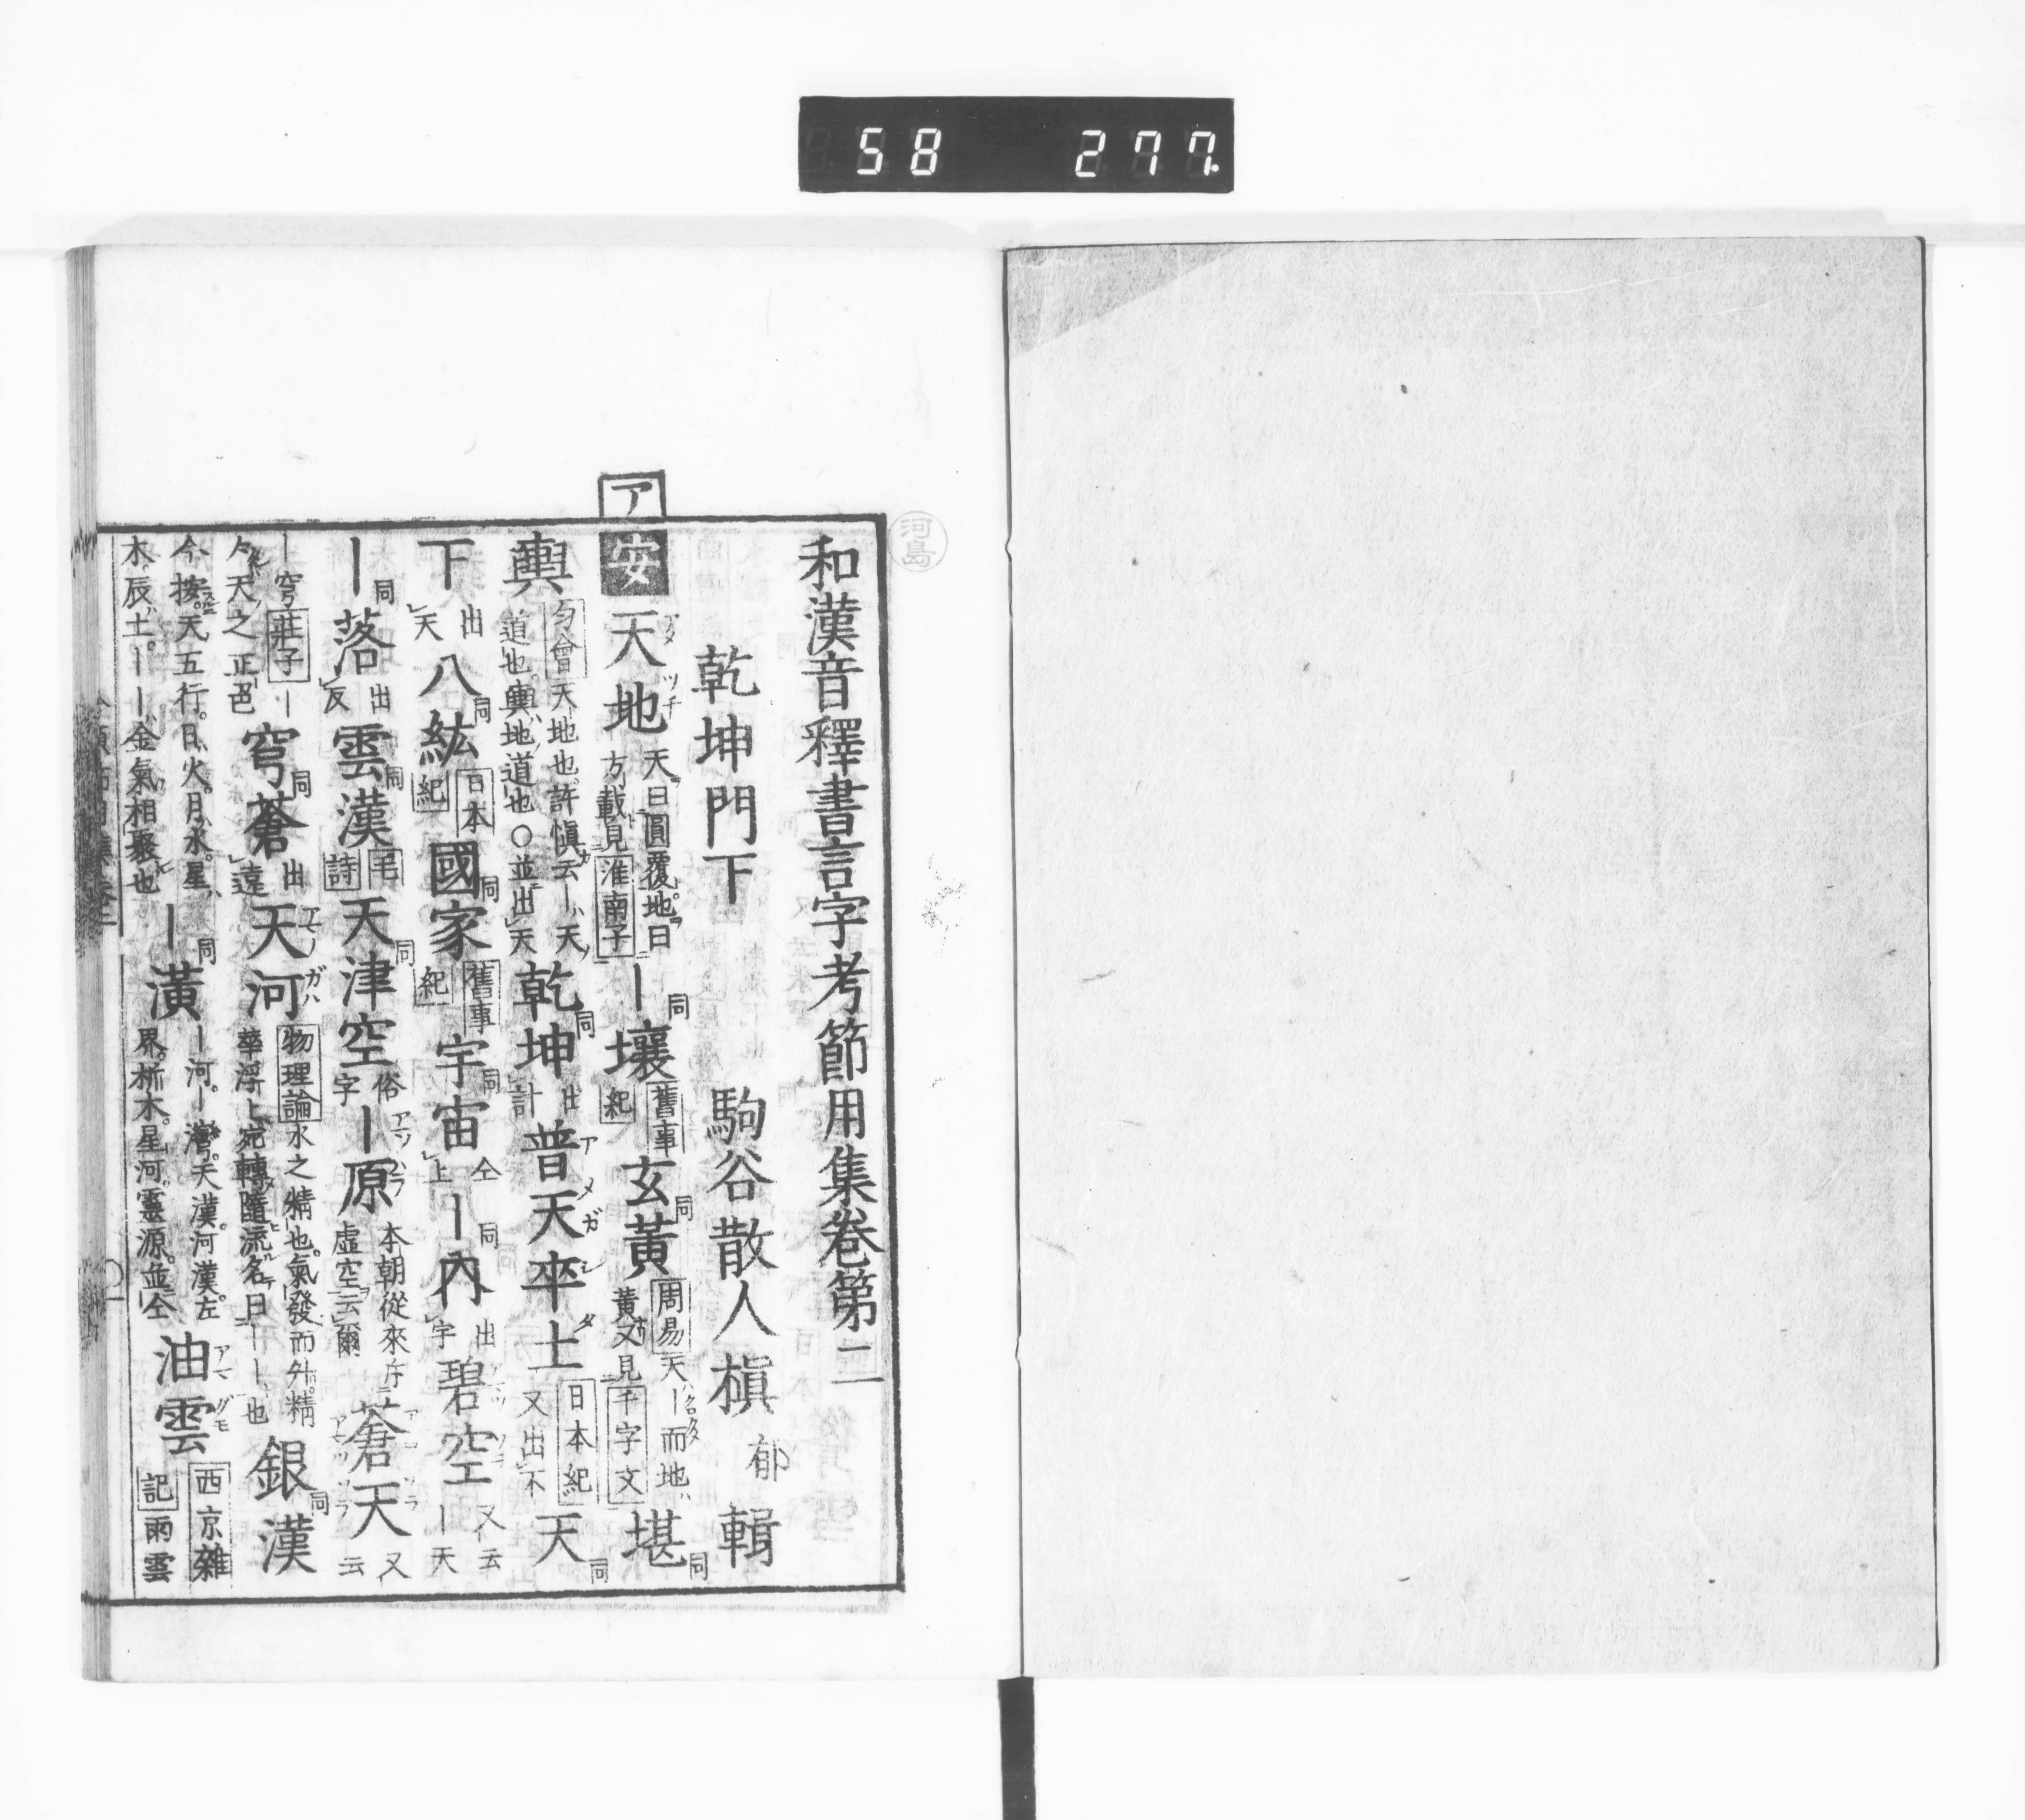 58 277
河島
和漢音釋書言字考節用集卷第二
乾坤門下 駒谷散人槙 郁 輯
ア
安 天地 アメツチ 天曰圓覆地曰方載見淮南子 ー壤 同 舊事紀 玄黄 同 周易天ー而地黄又見千字文 堪 同
輿 匀會天地也許愼云ーハ天道也輿ハ地道也○並出天 乾坤 同 出計 普天卒土 アメガシタ 日本紀又出不 天 同
下 出天 八紘 同 日本紀 國家 同 舊事紀 宇宙 同 仝上 ー內 同 出字 碧空 又云ー天
ー落 同 出反 雲漢 同 毛詩 天津空 同 俗字 ー原 アマツハラ 本朝從來斥虛空云爾 蒼天 又云
ー穹 莊子ー々天之正色 穹蒼 同 出遠 天河 アマノガハ 物理論水之精也氣發而升精華浮上宛轉隨流名曰ーー也 銀漢 同
今按天五行日火月水星木辰土ーー金氣相聚也 ー潢 同 ー河ー灣天漢河漢左界析木星河靈源並仝 油雲 アマグモ 西京雜記雨雲